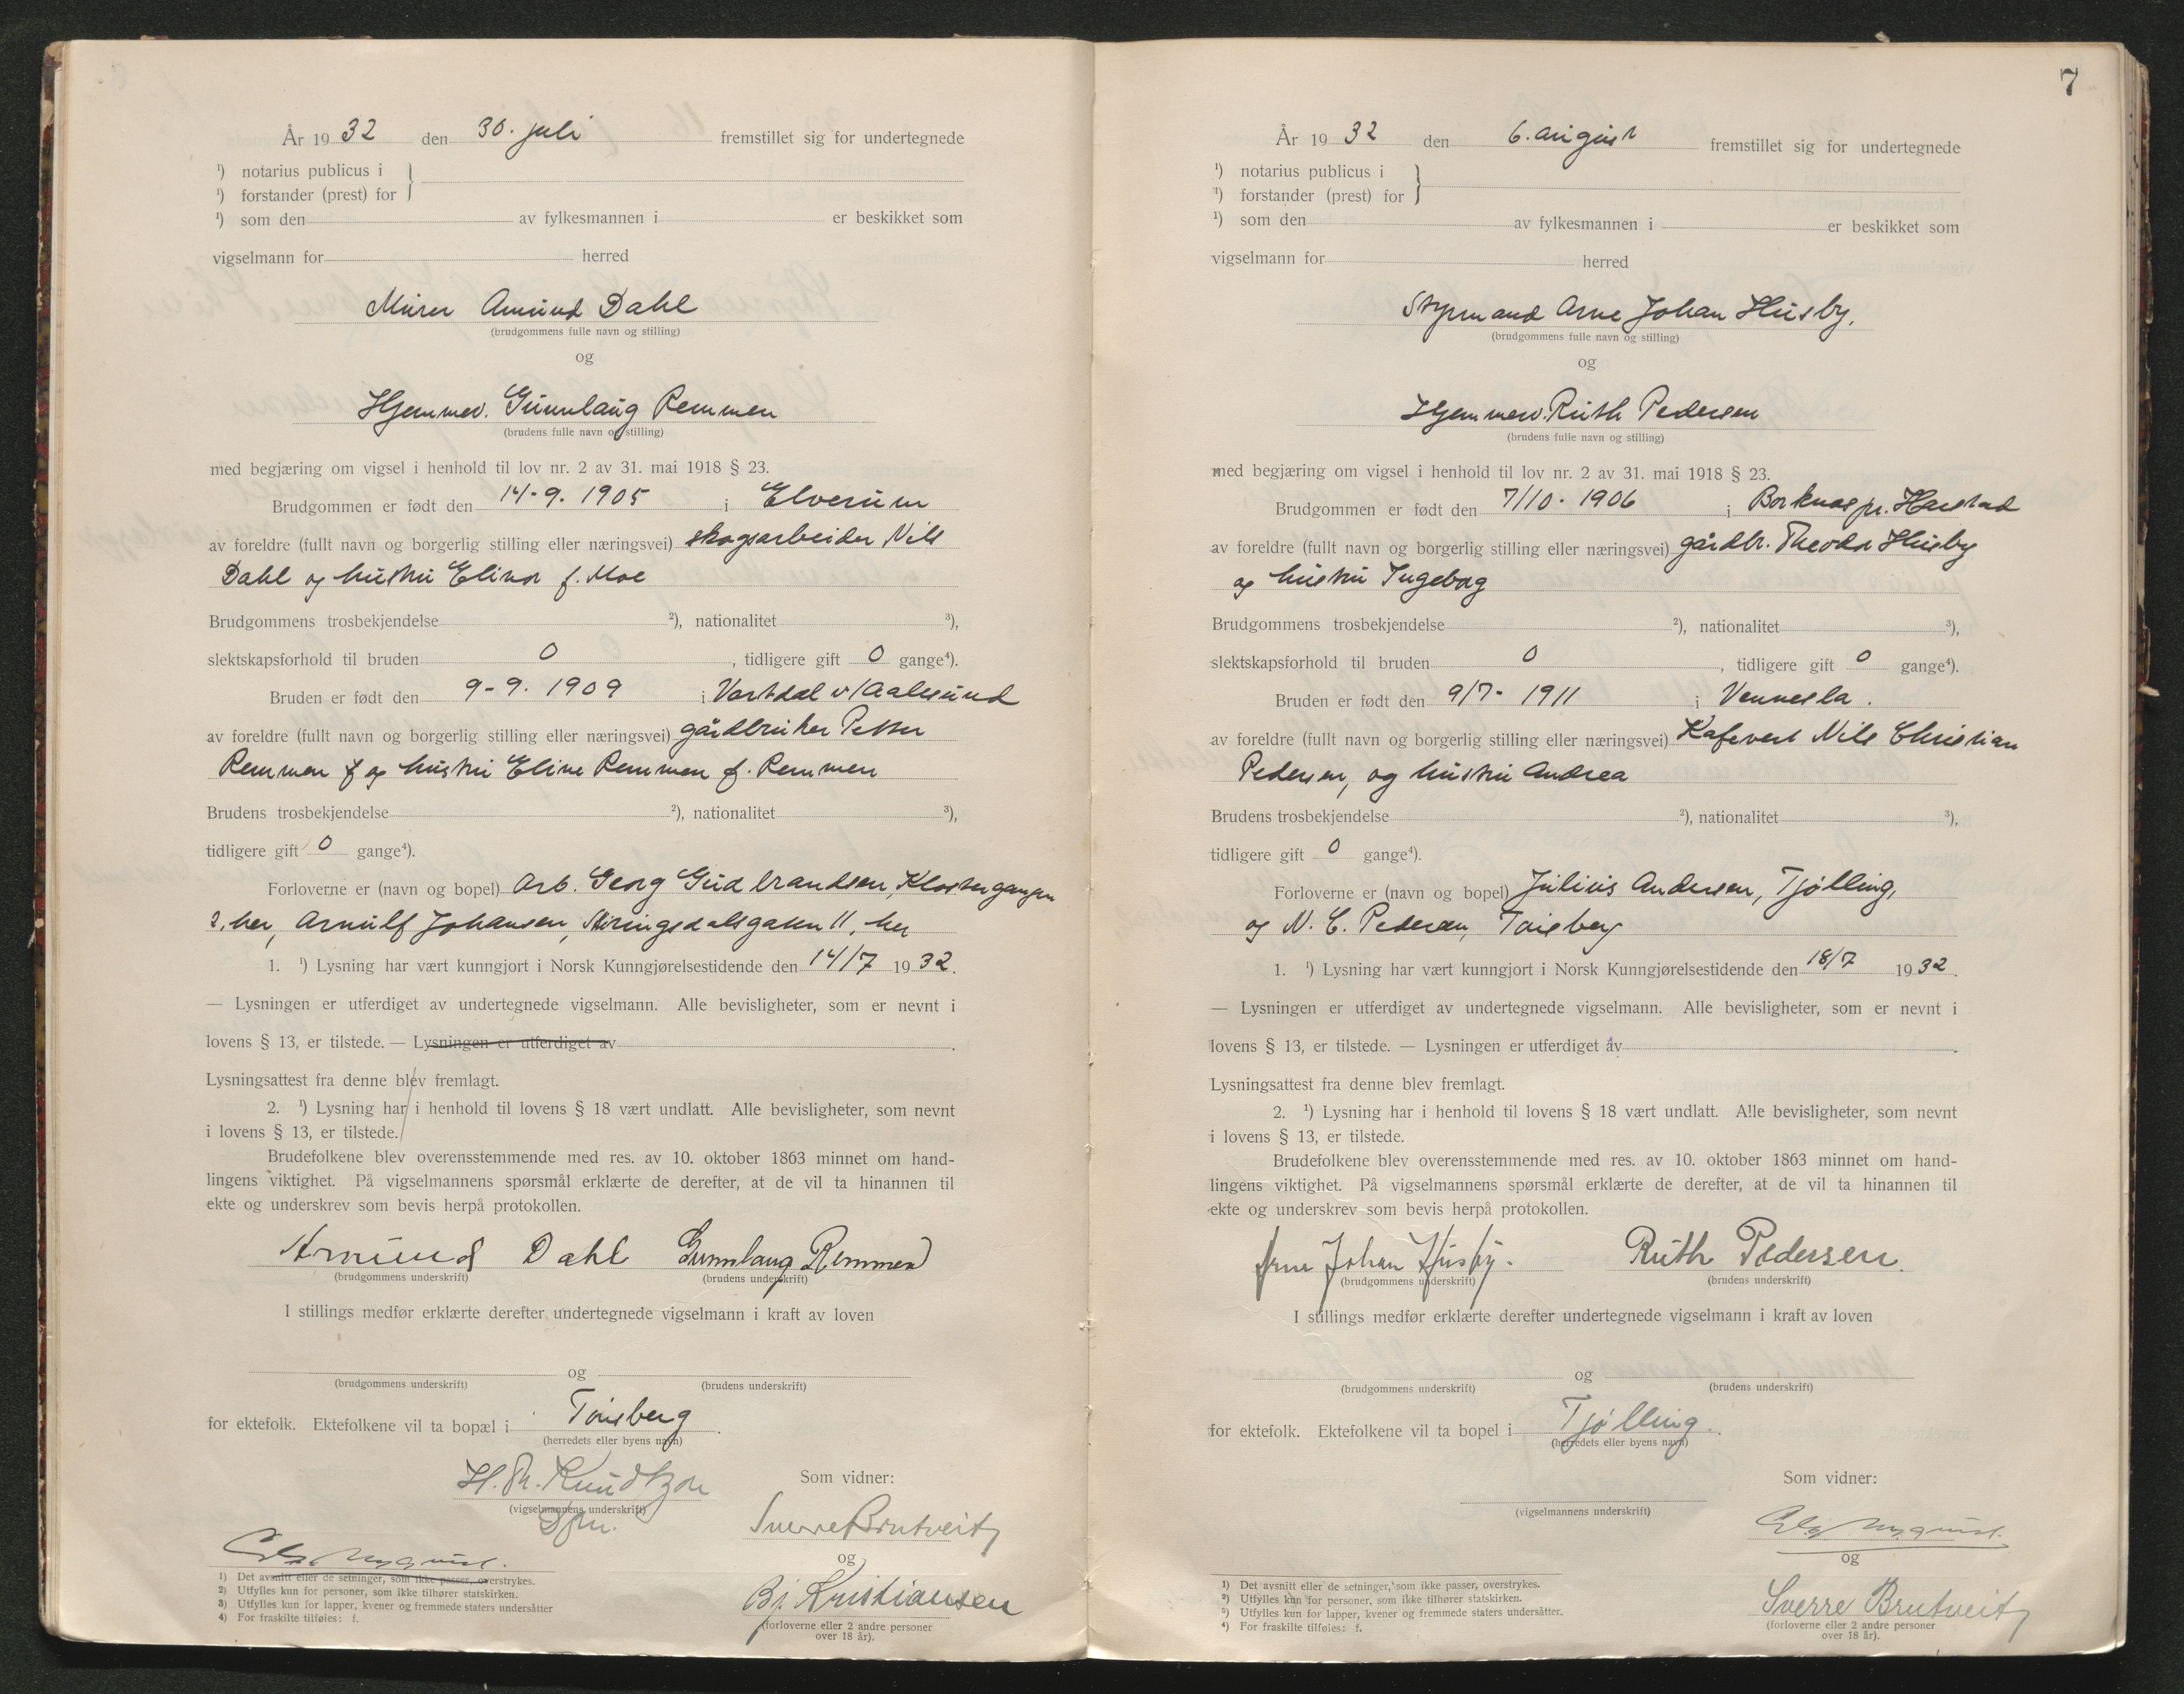 År 19 32 den 30. juli fremstillet sig for undertegnede
¹) notarius publicus i
¹) forstander (prest) for
¹) som den av fylkesmannen i er beskikket som
vigselmann for herred
Murer Amund Dahl
(brudgommens fulle navn og stilling)
og
Hjemmev. Gunnlaug Remmen
(brudens fulle navn og stilling)
med begjæring om vigsel i henhold til lov nr. 2 av 31. mai 1918 § 23.
Brudgommen er født den 14-9. 1905 i Elverum
av foreldre (fullt navn og borgerlig stilling eller næringsvei) skogsarbeider Nils
Dahl og hustru Elinor f. Moe
Brudgommens trosbekjendelse ²), nationalitet ³),
slektskapsforhold til bruden 0, tidligere gift 0 gange⁴).
Bruden er født den 9-9. 1909 i Vartdal v/Aalesund
av foreldre (fullt navn og borgerlig stilling eller næringsvei) gårdbruker Petter
Remmen f og hustru Eline Remmen f. Remmen
Brudens trosbekjendelse ²), nationalitet ³),
tidligere gift 0 gange⁴).
Forloverne er (navn og bopel) Arb. Georg Gudbrandsen, Klostergangen
2, her, Arnulf Johansen, Skiringsdalsgaten 11, her
1. ¹) Lysning har vært kunngjort i Norsk Kunngjørelsestidende den 14/7 1932.
— Lysningen er utferdiget av undertegnede vigselmann. Alle bevisligheter, som er nevnt i
lovens § 13, er tilstede. — Lysningen er utferdiget av .
Lysningsattest fra denne blev fremlagt.
2. ¹) Lysning har i henhold til lovens § 18 vært undlatt. Alle bevisligheter, som nevnt
i lovens § 13, er tilstede.
Brudefolkene blev overensstemmende med res. av 10. oktober 1863 minnet om hand-
lingens viktighet. På vigselmannens spørsmål erklærte de derefter, at de vil ta hinannen til
ekte og underskrev som bevis herpå protokollen.
Amund Dahl Gunnlaug Remmen
(brudgommens underskrift) (brudens underskrift)
I stillings medfør erklærte derefter undertegnede vigselmann i kraft av loven
og
(brudgommens underskrift) (brudens underskrift)
for ektefolk. Ektefolkene vil ta bopæl i Tønsberg.
(herredets eller byens navn)
H. Th. Knudtzon
Som vidner:
(vigselmannens underskrift)
Sverre Brutveit
og
Bj. Kristiansen
(forloverne eller 2 andre personer
over 18 år).
¹) Det avsnitt eller de setninger, som ikke passer, overstrykes.
²) Utfylles kun for personer, som ikke tilhører statskirken.
³) Utfylles kun for lapper, kvener og fremmede staters undersåtter
⁴) For fraskilte tilføies: f.
7
År 19 32 den 6. august fremstillet sig for undertegnede
¹) notarius publicus i
¹) forstander (prest) for
¹) som den av fylkesmannen i er beskikket som
vigselmann for herred
Styrmand Arne Johan Husby.
(brudgommens fulle navn og stilling)
og
Hjemmev. Ruth Pedersen
(brudens fulle navn og stilling)
med begjæring om vigsel i henhold til lov nr. 2 av 31. mai 1918 § 23.
Brudgommen er født den 7/10 - 1906 i Borknes pr. Harstad
av foreldre (fullt navn og borgerlig stilling eller næringsvei) gårdbr. Theodor Husby
og hustru Ingeborg
Brudgommens trosbekjendelse ²), nationalitet ³),
slektskapsforhold til bruden 0, tidligere gift 0 gange⁴).
Bruden er født den 9/7 - 1911 i Vennesla.
av foreldre (fullt navn og borgerlig stilling eller næringsvei) Kafevert Nils Christian
Pedersen, og hustru Andrea
Brudens trosbekjendelse ²), nationalitet ³),
tidligere gift 0 gange⁴).
Forloverne er (navn og bopel) Julius Andersen, Tjølling,
og N. C. Pedersen, Tønsberg
1. ¹) Lysning har vært kunngjort i Norsk Kunngjørelsestidende den 18/7 1932.
— Lysningen er utferdiget av undertegnede vigselmann. Alle bevisligheter, som er nevnt i
lovens § 13, er tilstede. — Lysningen er utferdiget av .
Lysningsattest fra denne blev fremlagt.
2. ¹) Lysning har i henhold til lovens § 18 vært undlatt. Alle bevisligheter, som nevnt
i lovens § 13, er tilstede.
Brudefolkene blev overensstemmende med res. av 10. oktober 1863 minnet om hand-
lingens viktighet. På vigselmannens spørsmål erklærte de derefter, at de vil ta hinannen til
ekte og underskrev som bevis herpå protokollen.
Arne Johan Husby. Ruth Pedersen.
(brudgommens underskrift) (brudens underskrift)
I stillings medfør erklærte derefter undertegnede vigselmann i kraft av loven
og
(brudgommens underskrift) (brudens underskrift)
for ektefolk. Ektefolkene vil ta bopel i Tjølling.
(herredets eller byens navn)
Som vidner:
(vigselmannens underskrift)
og
Sverre Brutveit
(forloverne eller 2 andre personer
over 18 år).
¹) Det avsnitt eller de setninger, som ikke passer, overstrykes.
²) Utfylles kun for personer, som ikke tilhører statskirken.
³) Utfylles kun for lapper, kvener og fremmede staters undersåtter.
⁴) For fraskilte tilføies: f.